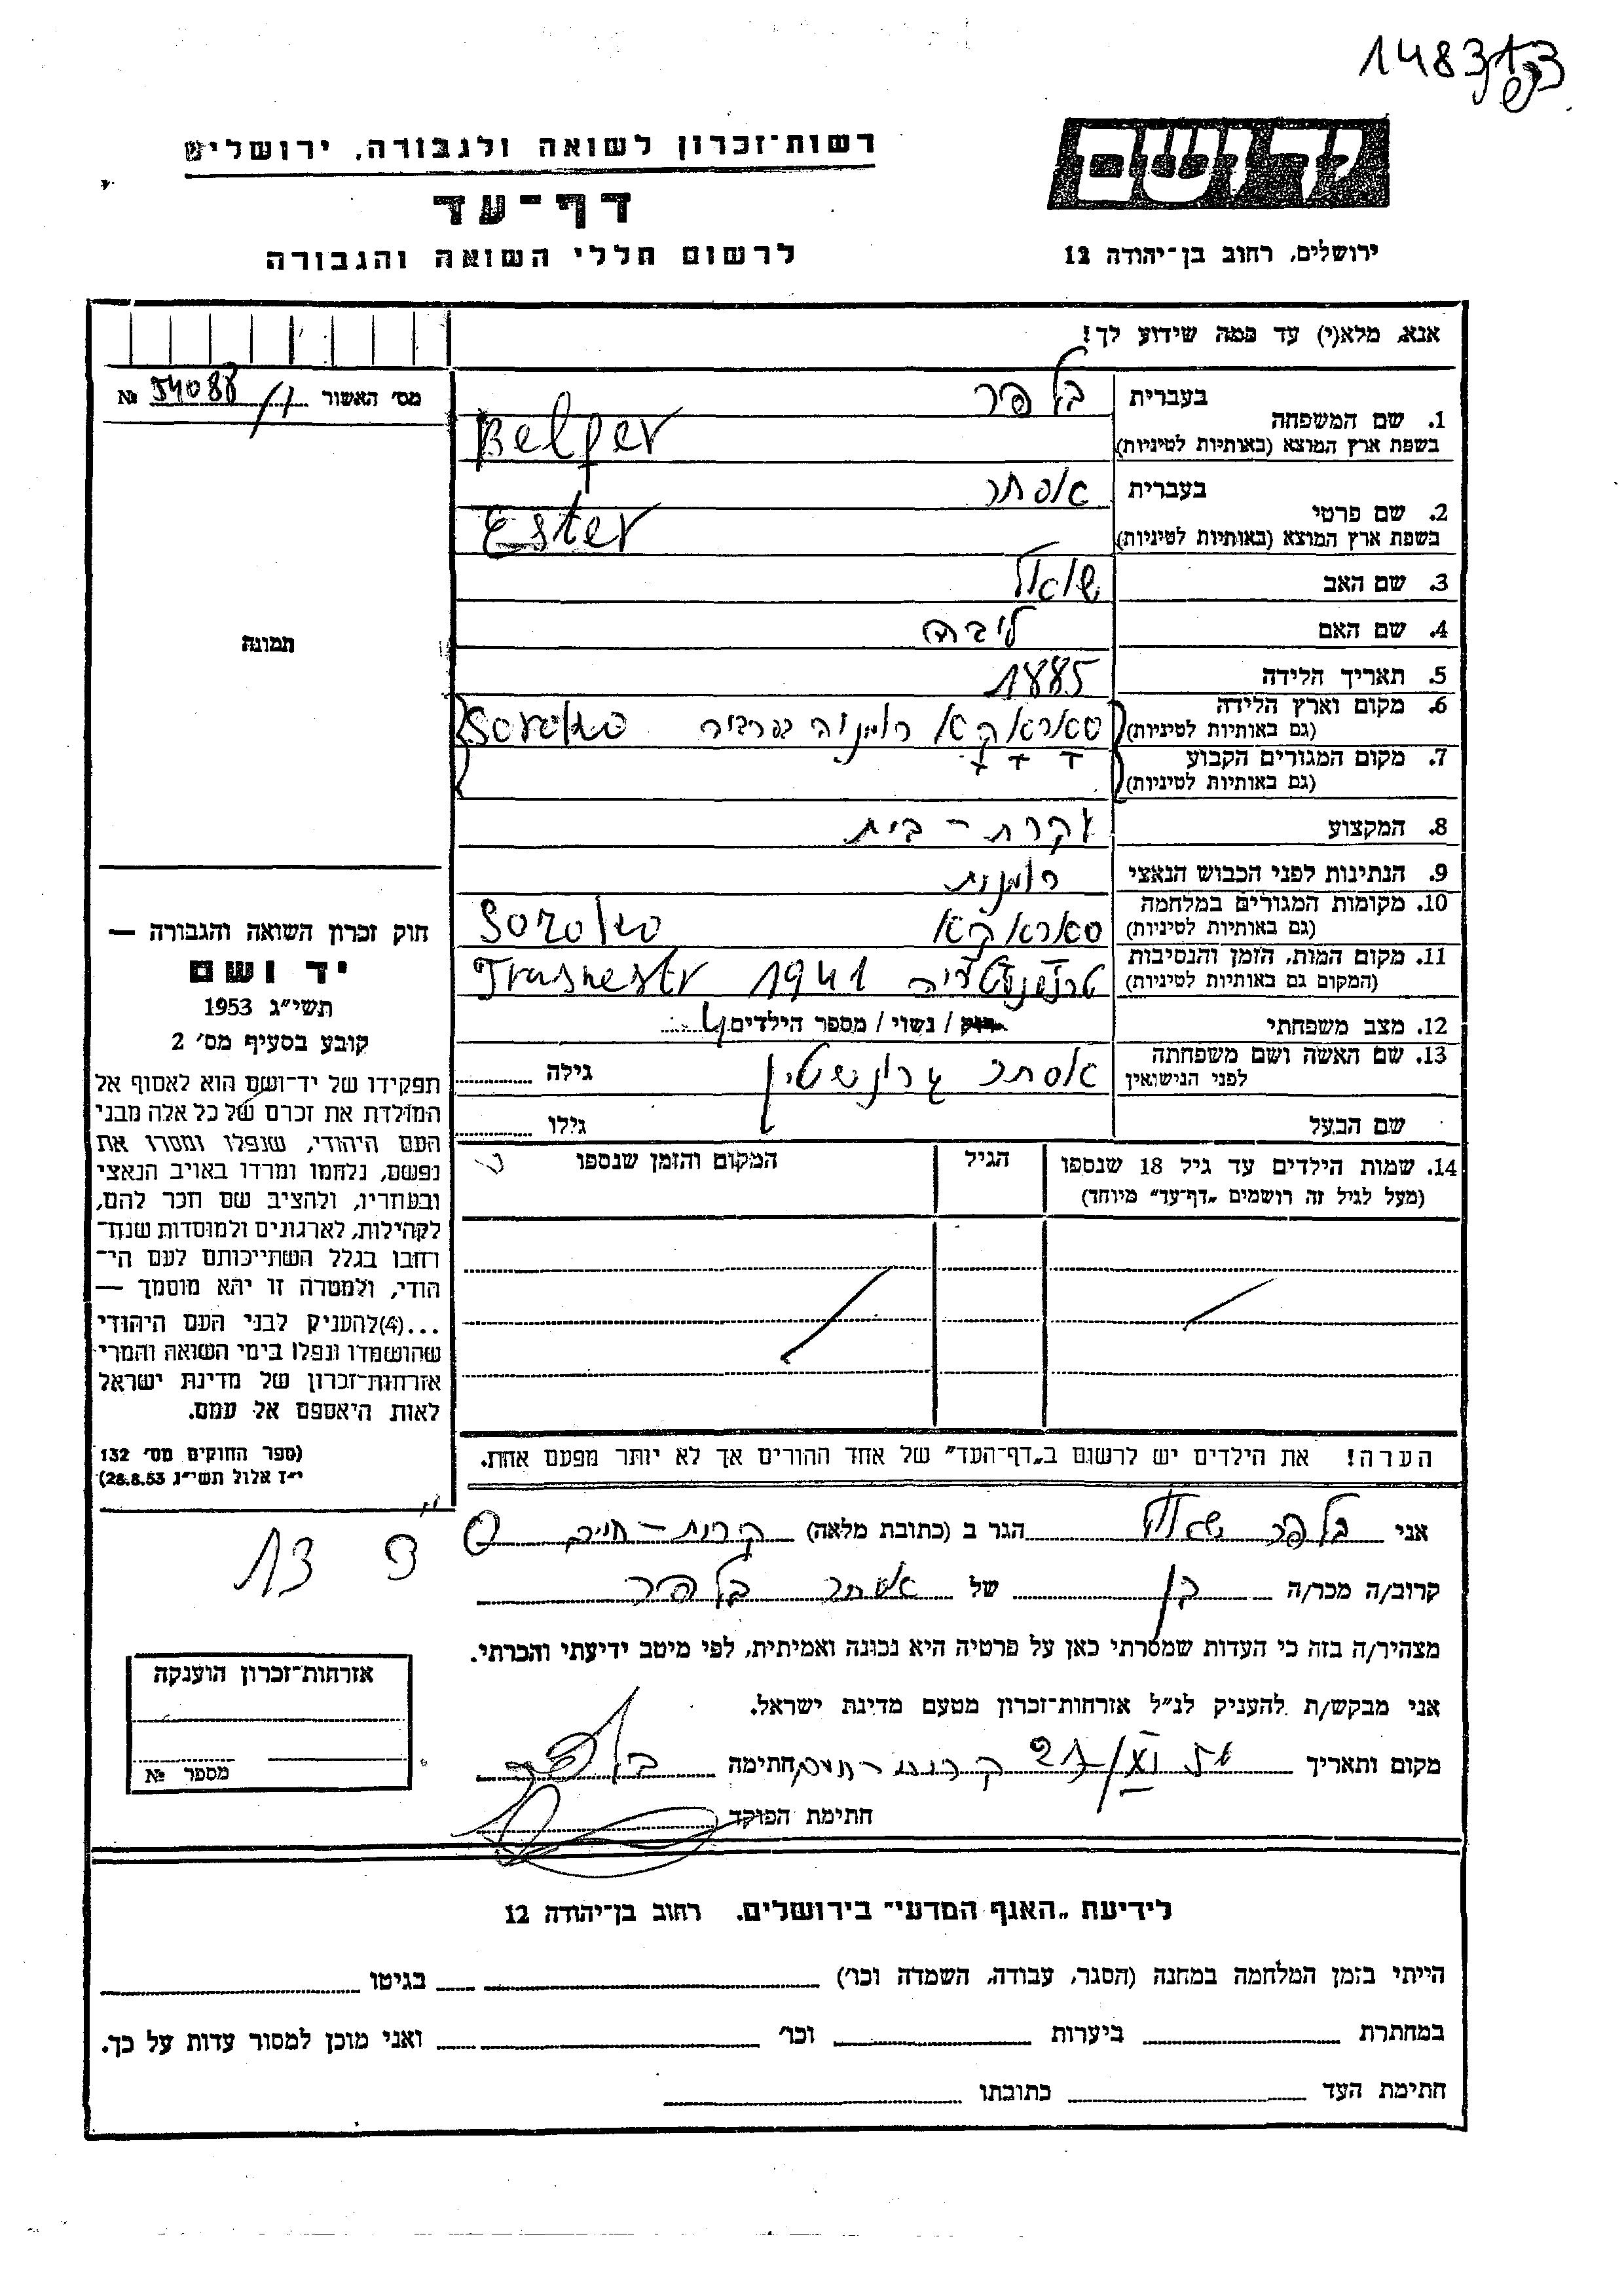 רשות־זכרון לשואה ולגבורה, ירושלים
דף־עד
לרשום חללי השואה והגבורה
יד ושם
ירושלים, רחוב בן־יהודה 12
אנא, מלא(י) עד כמה שידוע לך!
מס׳ האשור 54088 №
1. שם המשפחה
בעברית בלפר
בשפת ארץ המוצא (באותיות לטיניות) Belfer
2. שם פרטי
בעברית אסתר
בשפת ארץ המוצא (באותיות לטיניות) Ester
3. שם האב שאול
4. שם האם ליבה
5. תאריך הלידה 1885
6. מקום וארץ הלידה
(גם באותיות לטיניות) סאראקא רומניה Soroko
7. מקום המגורים הקבוע
(גם באותיות לטיניות)
8. המקצוע עקרת - בית
9. הנתינות לפני הכבוש הנאצי רומנית
10. מקומות המגורים במלחמה
(גם באותיות לטיניות) סאראקא Soroko
11. מקום המות, הזמן והנסיבות
(המקום גם באותיות לטיניות) טרנסניסטריה 1941 Trasnestr
12. מצב משפחתי רוק / נשוי / מספר הילדים 4
13. שם האשה ושם משפחתה
לפני הנישואין אסתר גרונשטין גילה
שם הבעל גילו
14. שמות הילדים עד גיל 18 שנספו
(מעל לגיל זה רושמים „דף־עד” מיוחד)
הגיל
המקום והזמן שנספו
הערה! את הילדים יש לרשום ב„דף־העד” של אחד ההורים אך לא יותר מפעם אחת.
תמונה
חוק זכרון השואה והגבורה —
יד ושם
תשי״ג 1953
קובע בסעיף מס׳ 2
תפקידו של יד־ושם הוא לאסוף אל
המולדת את זכרם של כל אלה מבני
העם היהודי, שנפלו ומסרו את
נפשם, נלחמו ומרדו באויב הנאצי
ובעוזריו, ולהציב שם וזכר להם,
לקהילות, לארגונים ולמוסדות שנח־
רבו בגלל השתייכותם לעם הי־
הודי, ולמטרה זו יהא מוסמך —
...(4)להעניק לבני העם היהודי
שהושמדו ונפלו בימי השואה והמרי
אזרחות־זכרון של מדינת ישראל
לאות היאספם אל עמם.
(ספר החוקים מס׳ 132
י״ז אלול תשי״ג, 28.8.53)
אני בלפר שאול הגר ב (כתובת מלאה) קרית - חיים
קרוב/ה מכר/ה בן של אסתר בלפר
מצהיר/ה בזה כי העדות שמסרתי כאן על פרטיה היא נכונה ואמיתית, לפי מיטב ידיעתי והכרתי.
אני מבקש/ת להעניק לנ״ל אזרחות־זכרון מטעם מדינת ישראל.
מקום ותאריך קרית - חיים 27/XI חתימה בלפר
חתימת הפוקד
אזרחות־זכרון הוענקה
מספר №
לידיעת „האגף המדעי” בירושלים. רחוב בן־יהודה 12
הייתי בזמן המלחמה במחנה (הסגר, עבודה, השמדה וכו׳) בגיטו
במחתרת ביערות וכו׳ ואני מוכן למסור עדות על כך.
חתימת העד כתובתו